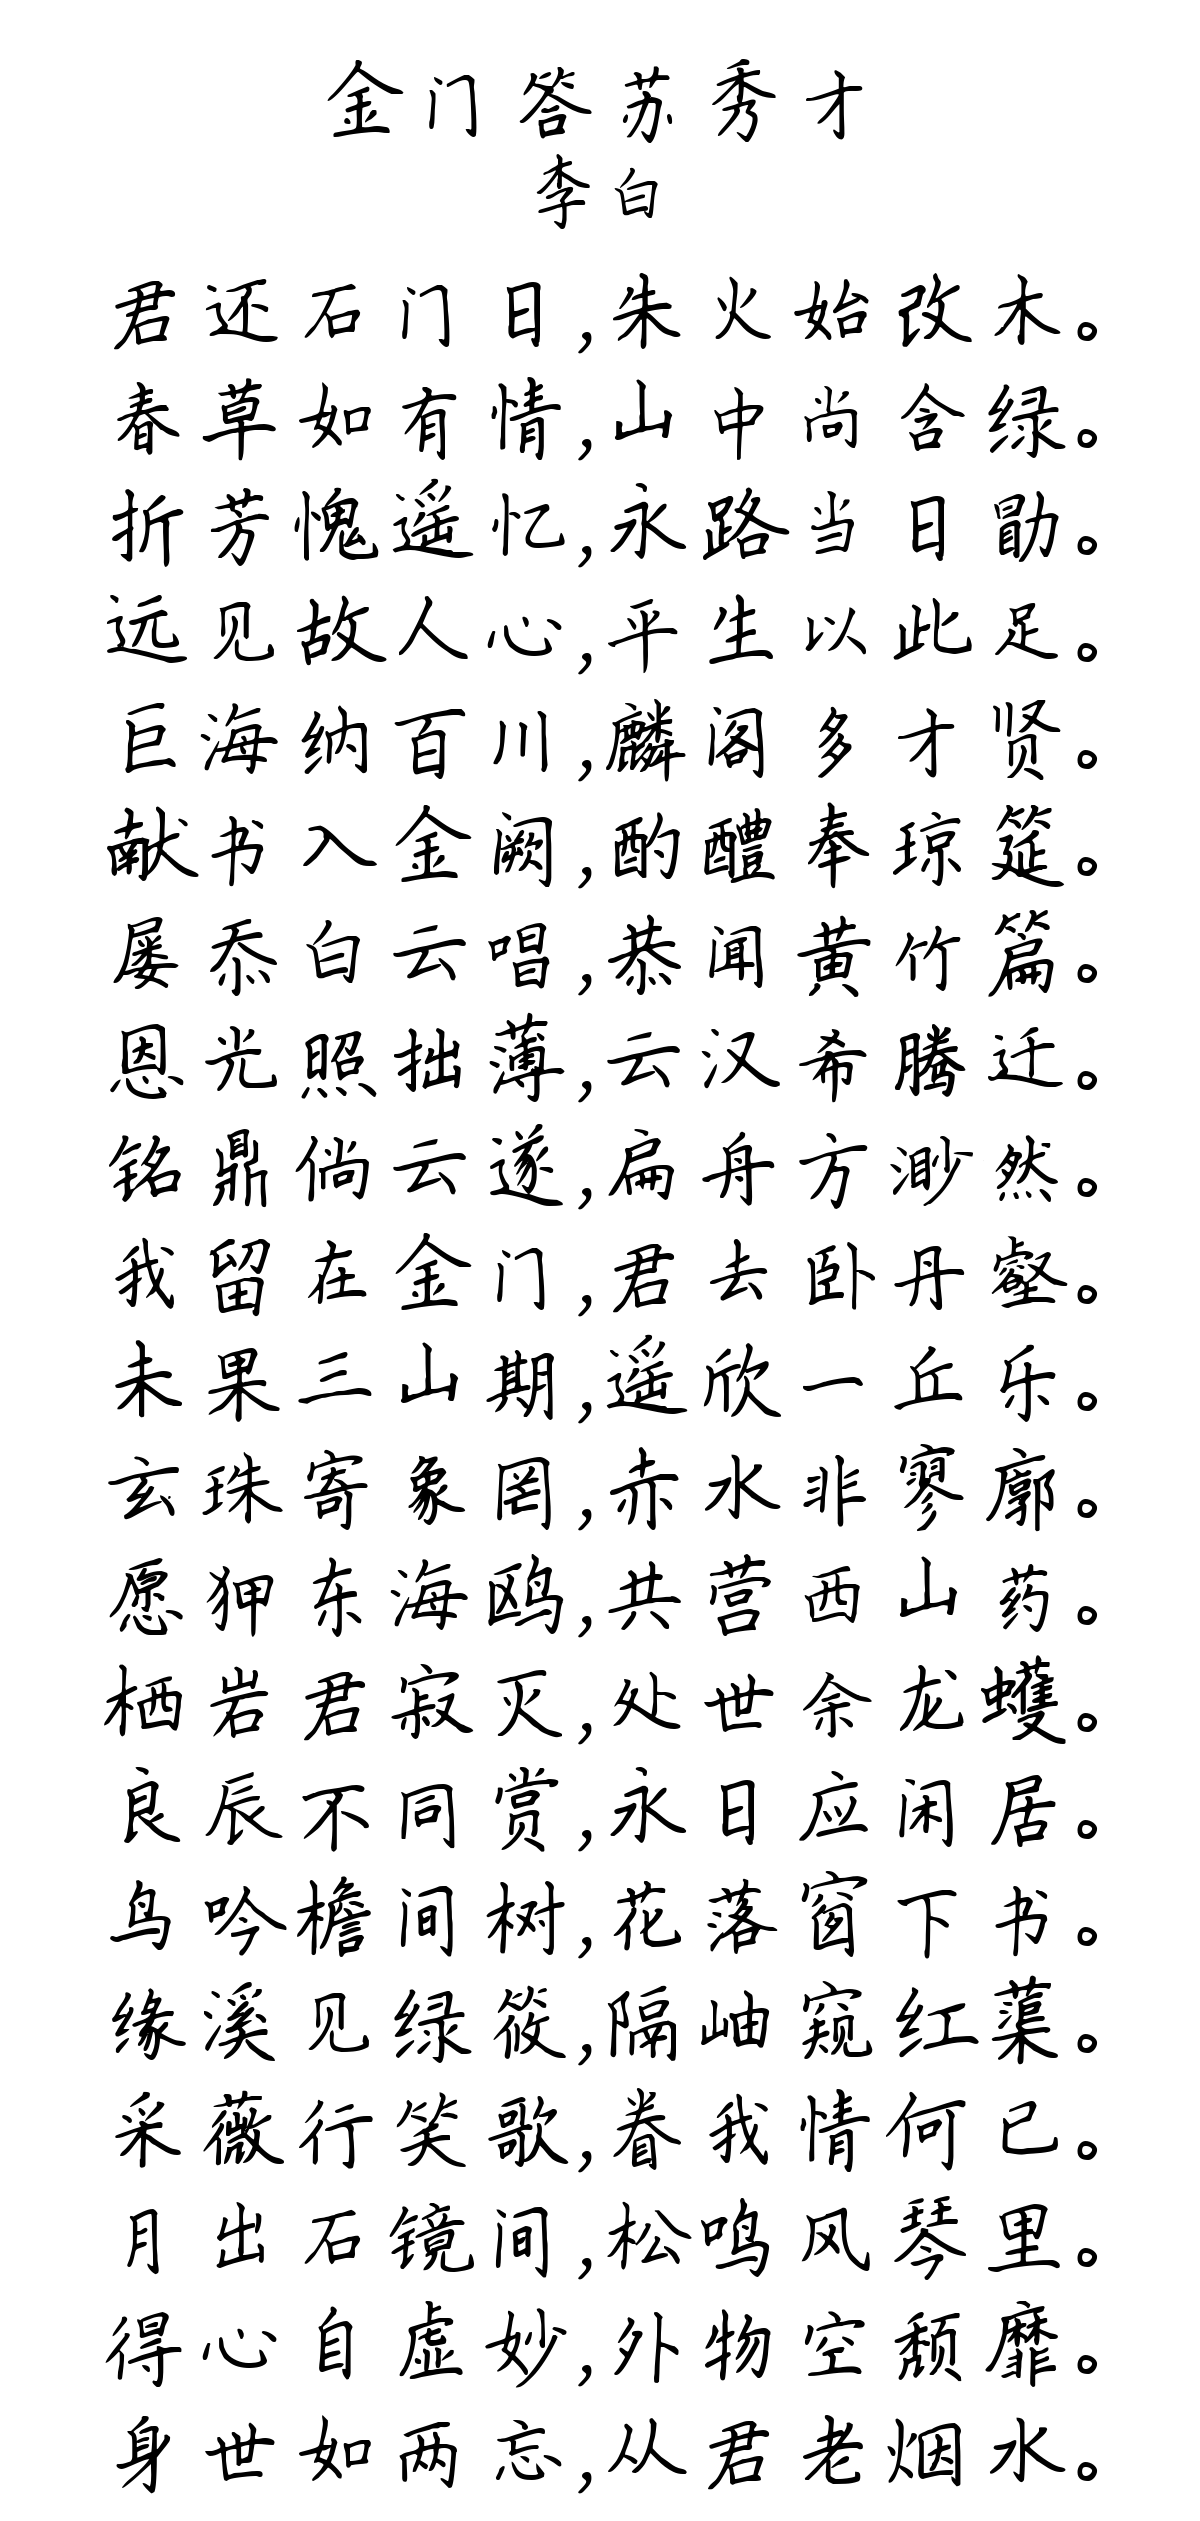 金门答苏秀才
李白
君还石门日,朱火始改木。
春草如有情,山中尚含绿。
折芳愧遥忆,永路当日勖。
远见故人心,平生以此足。
巨海纳百川,麟阁多才贤。
献书入金阙,酌醴奉琼筵。
屡忝白云唱,恭闻黄竹篇。
恩光照拙薄,云汉希腾迁。
铭鼎倘云遂,扁舟方渺然。
我留在金门,君去卧丹壑。
未果三山期,遥欣一丘乐。
玄珠寄象罔,赤水非寥廓。
愿狎东海鸥,共营西山药。
栖岩君寂灭,处世余龙蠖。
良辰不同赏,永日应闲居。
鸟吟檐间树,花落窗下书。
缘溪见绿筱,隔岫窥红蕖。
采薇行笑歌,眷我情何已。
月出石镜间,松鸣风琴里。
得心自虚妙,外物空颓靡。
身世如两忘,从君老烟水。